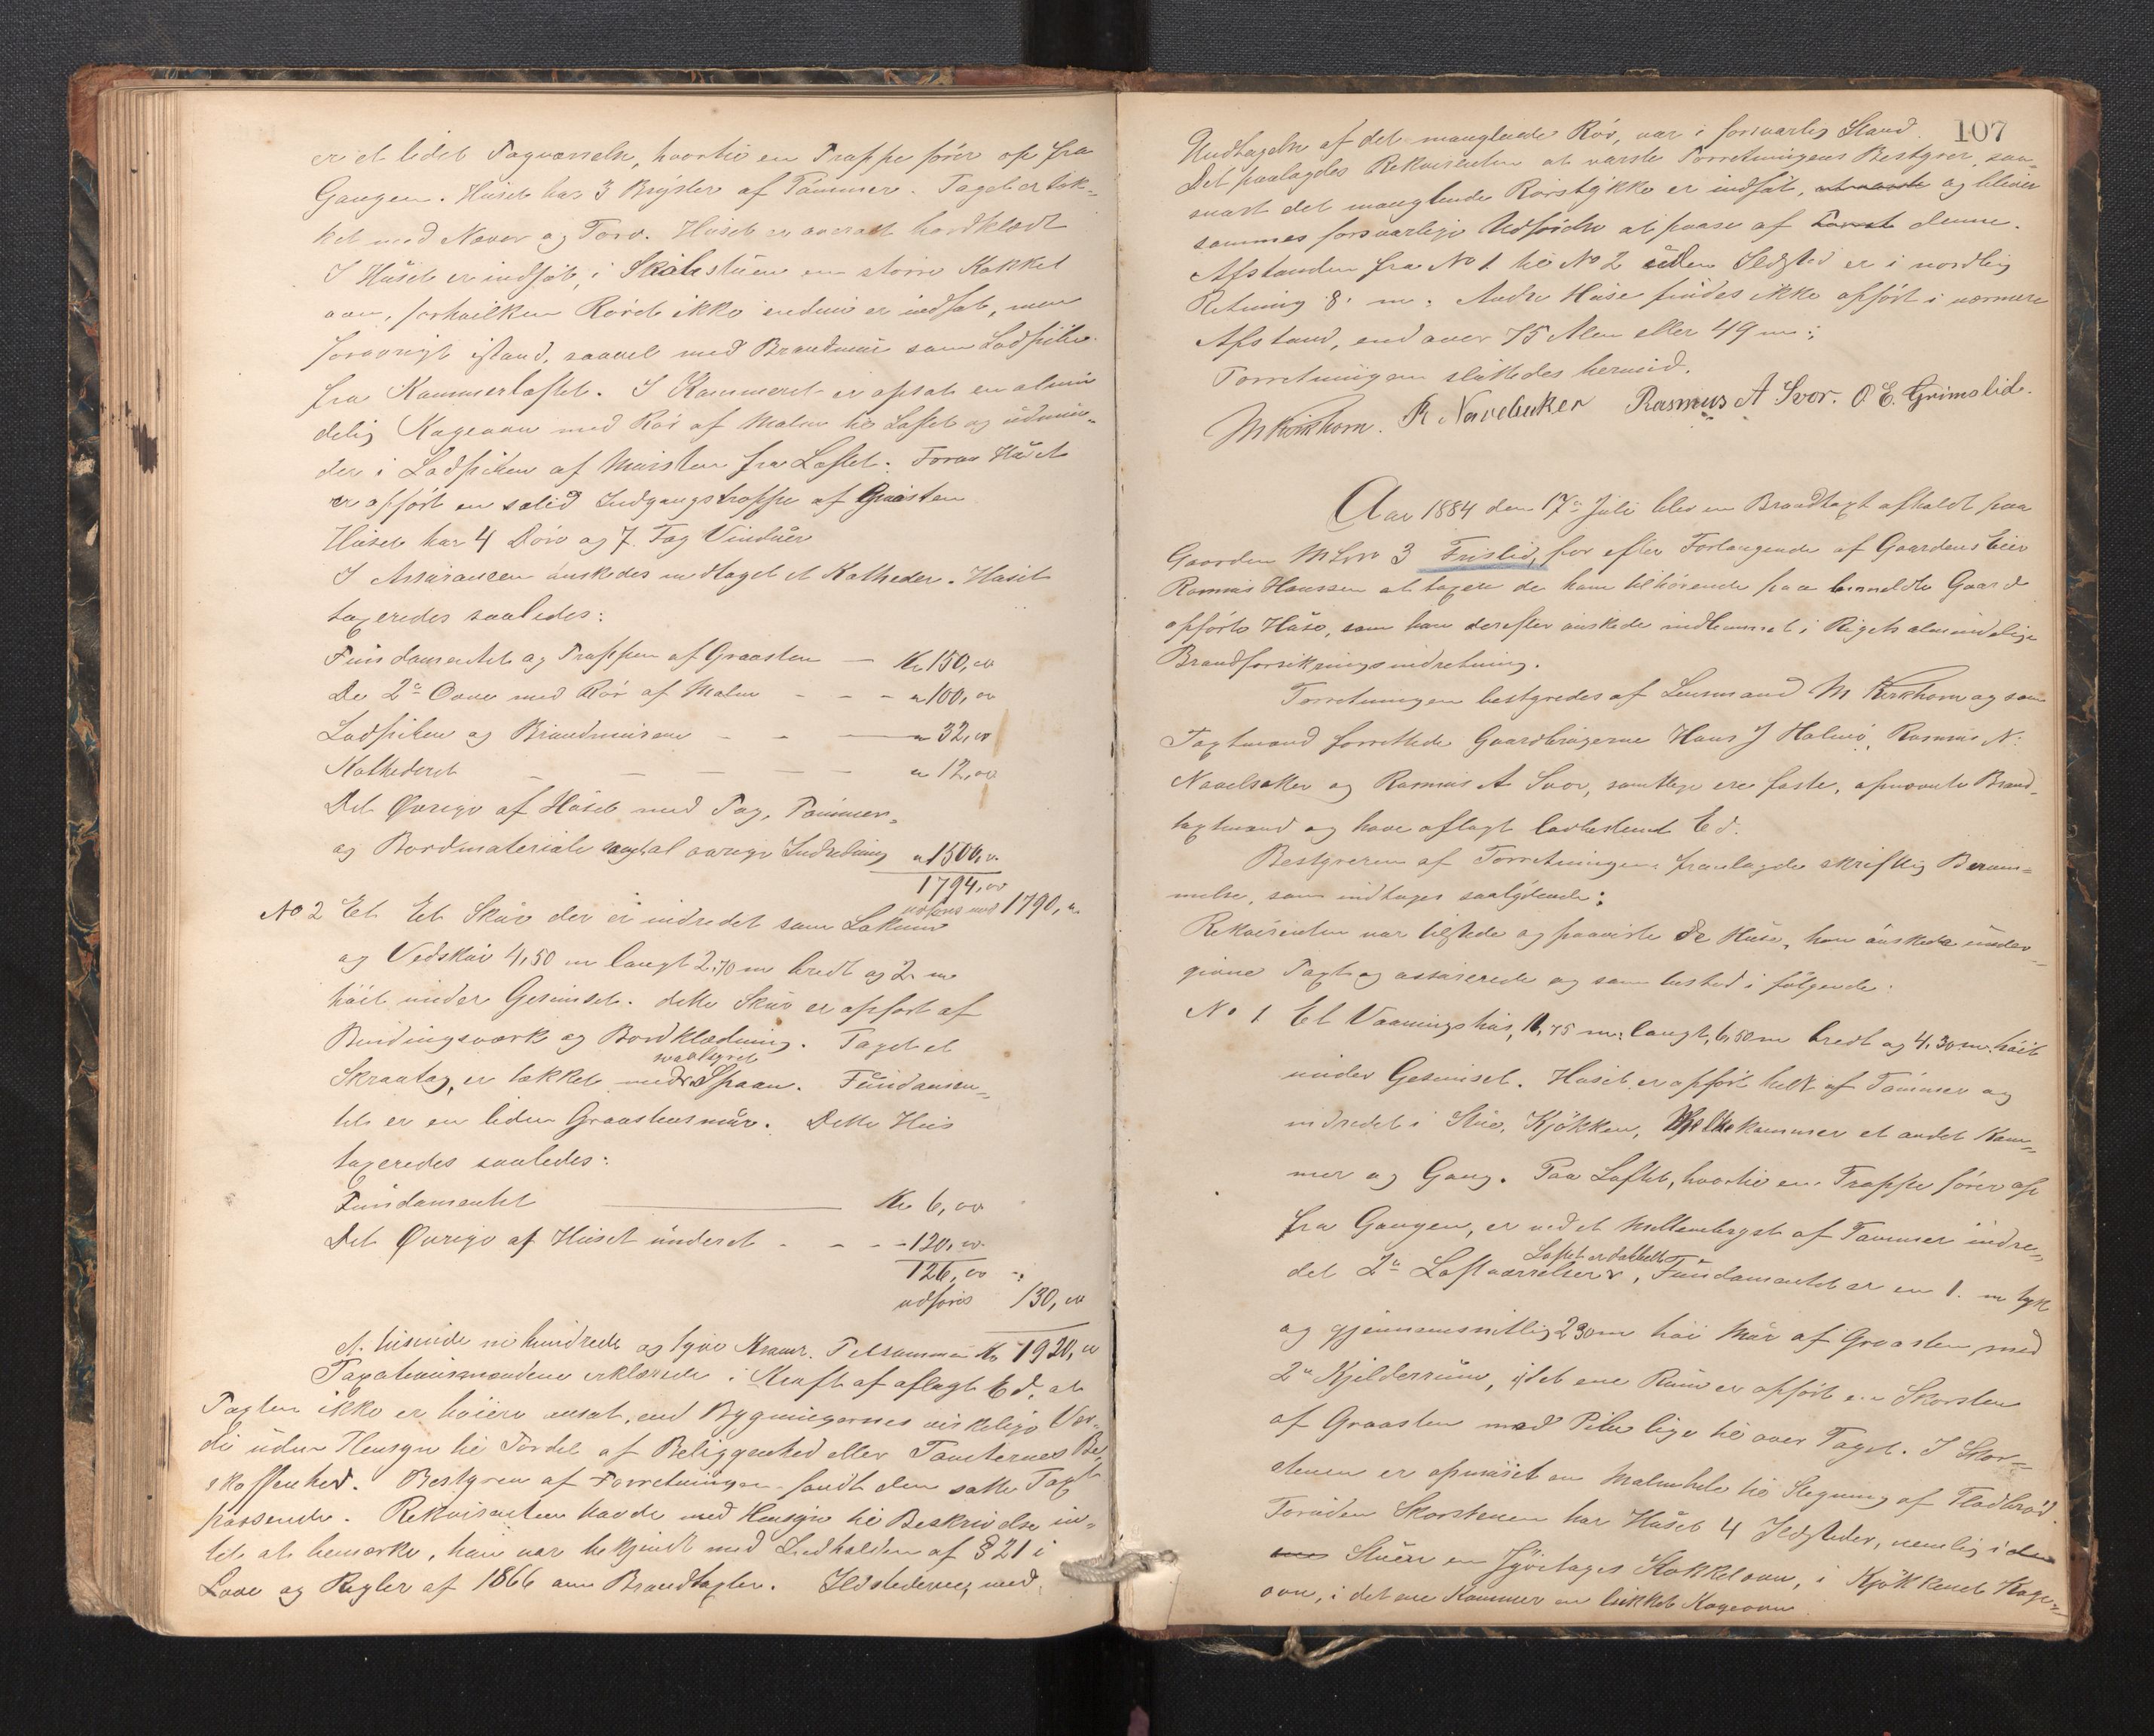 er et lidet Tagværelse, hvortil en Trappe fører op fra
Gangen. Huset har 3 Bryster af Tømmer. Taget er tæk-
ket med Næver og Torv. Huset er overalt bordklædt
I Huset er indsat, i Skolestuen en større Kakkel
ovn, forhvilken Røret ikke endnu er indsat, men
forøvrigt istand, saavel med Brandmur som Ladpibe
fra Kammerloftet. I Kammeret er opsat en almin
delig Kogeovn med Rør af Malm til Loftet og udmun-
der i Ladpiben af Mursten fra Loftet. Foran Huset
er opført en solid Indgangstrappe af Graasten
Huset har 4 Døre og 7 Fag Vinduer
I Assurancen ønskedes medtaget et Katheder. Huset
taxeredes saaledes:
Fundamentet og Trappen af Graasten — Kr 150,00
De 2de Ovne med Rør af Malm - - - " 100,00
Ladpiben og Brandmuren - - — " 32,00
Kathederet — — — — — " 12,00
Det Øvrige af Huset med Tag, Tømmer-
og Bordmateriale samt al øvrige Indredning " 1500,00
1794,00
udføres med 1790,00
No 2 Et Et Skur der er indredet som Lokum
og Vedskur 4,50 m langt 2,70 m bredt og 2 m
høit under Gesimset. dette Skur er opført af
Bindingsværk og Bordklædning. Taget et
Skraatag, er tækket med Spaan. Fundamen-
tet er en liden Graastensmur. Dette Hus
taxeredes saaledes:
Fundamentet — Kr 6,00
Det Øvrige af Huset under et - - - - 120,00
126,00
udføres 130,00
et tusinde ni hundrede og tyve Kroner. Tilsammen Kr 1920,00
Taxationsmændene erklærede i Kraft af aflagt Ed, at
Taxten ikke er høiere ansat, end Bygningernes virkelige Vær-
di uden Hensyn til Fordel af Beliggenhed eller Tomternes Be-
skaffenhed. Bestyreren af Forretningen fandt den satte Taxt
passende. Rekvirenten havde med Hensyn til Beskrivelse in-
tet at bemærke, han var bekjendt med Indholdet af § 21 i
Love og Regler af 1866 om Brandtaxter. Ildstederne, med
107
Undtagelse af det manglende Rør, var i forsvarlig Stand.
Det paalagdes Rekvirenten at varsle Forretningens Bestyrer, saa-
snart det manglende Rørstykke er indsat, og bliver
sammes forsvarlige Udførelse at paase af denne.
Afstanden fra No 1 til No 2 uden Ildsted er i nordlig
Retning 8 m. Andre Huse findes ikke opført i nærmere
Afstand, end over 75 Alen eller 49 m.
Forretningen sluttedes hermed.
M Kirkhorn. R Navelsaker Rasmus A Svor. O E. Grimslid.
Aar 1884 den 17de Juli blev en Brandtaxt afholdt paa
Gaarden M L No 3 Frislid, for efter Forlangende af Gaardens Eier
Rasmus Hanssen at taxere de ham tilhørende paa bemeldte Gaard
opførte Huse, som han derefter ønskede indlemmet i Rigets almindelige
Brandforsikringsindretning.
Forretningen bestyredes af Lensmand M Kirkhorn og som
Taxtmænd forrettede Gaardbrugerne Hans J Holmø, Rasmus N.
Navelsaker og Rasmus A Svor, samtlige ere faste, opnævnte Brand-
taxtmænd og have aflagt lovbestemt Ed.
Bestyreren af Forretningen fremlagde skriftlig Beram-
melse, som indtages saalydende:
Rekvirenten var tilstede og paaviste de Huse, han ønskede under-
givne Taxt og assurerede og som bestod i følgende:
No 1 Et Vaaningshus, 11,75 m. langt, 6,50 m bredt og 4,30 m. høit
under Gesimset. Huset er opført helt af Tømmer og
indredet i Stue, Kjøkken, Melkekammer et andet Kam-
mer og Gang. Paa Loftet, hvortil en Trappe fører op
fra Gangen, er ved et Mellembryst af Tømmer indre-
det 2de Loftværrelser, Fundamentet er en 1 m tyk
Loftet er dobbelt
og gjennemsnitlig 2 30 m høi Mur af Graasten, med
2de Kjelderrum, i det ene Rum er opført en Skorsten
af Graasten med Pibe lige til over Taget. I Skor-
stenen er opmuret en Malmhelle til Stegning af Fladbrød.
Foruden Skorstenen har Huset 4 Ildsteder, nemlig i
Stuen en Etages Kakkelovn, i Kjøkkenet Koge-
ovn, i det ene Kammer en lukket Kogeovn